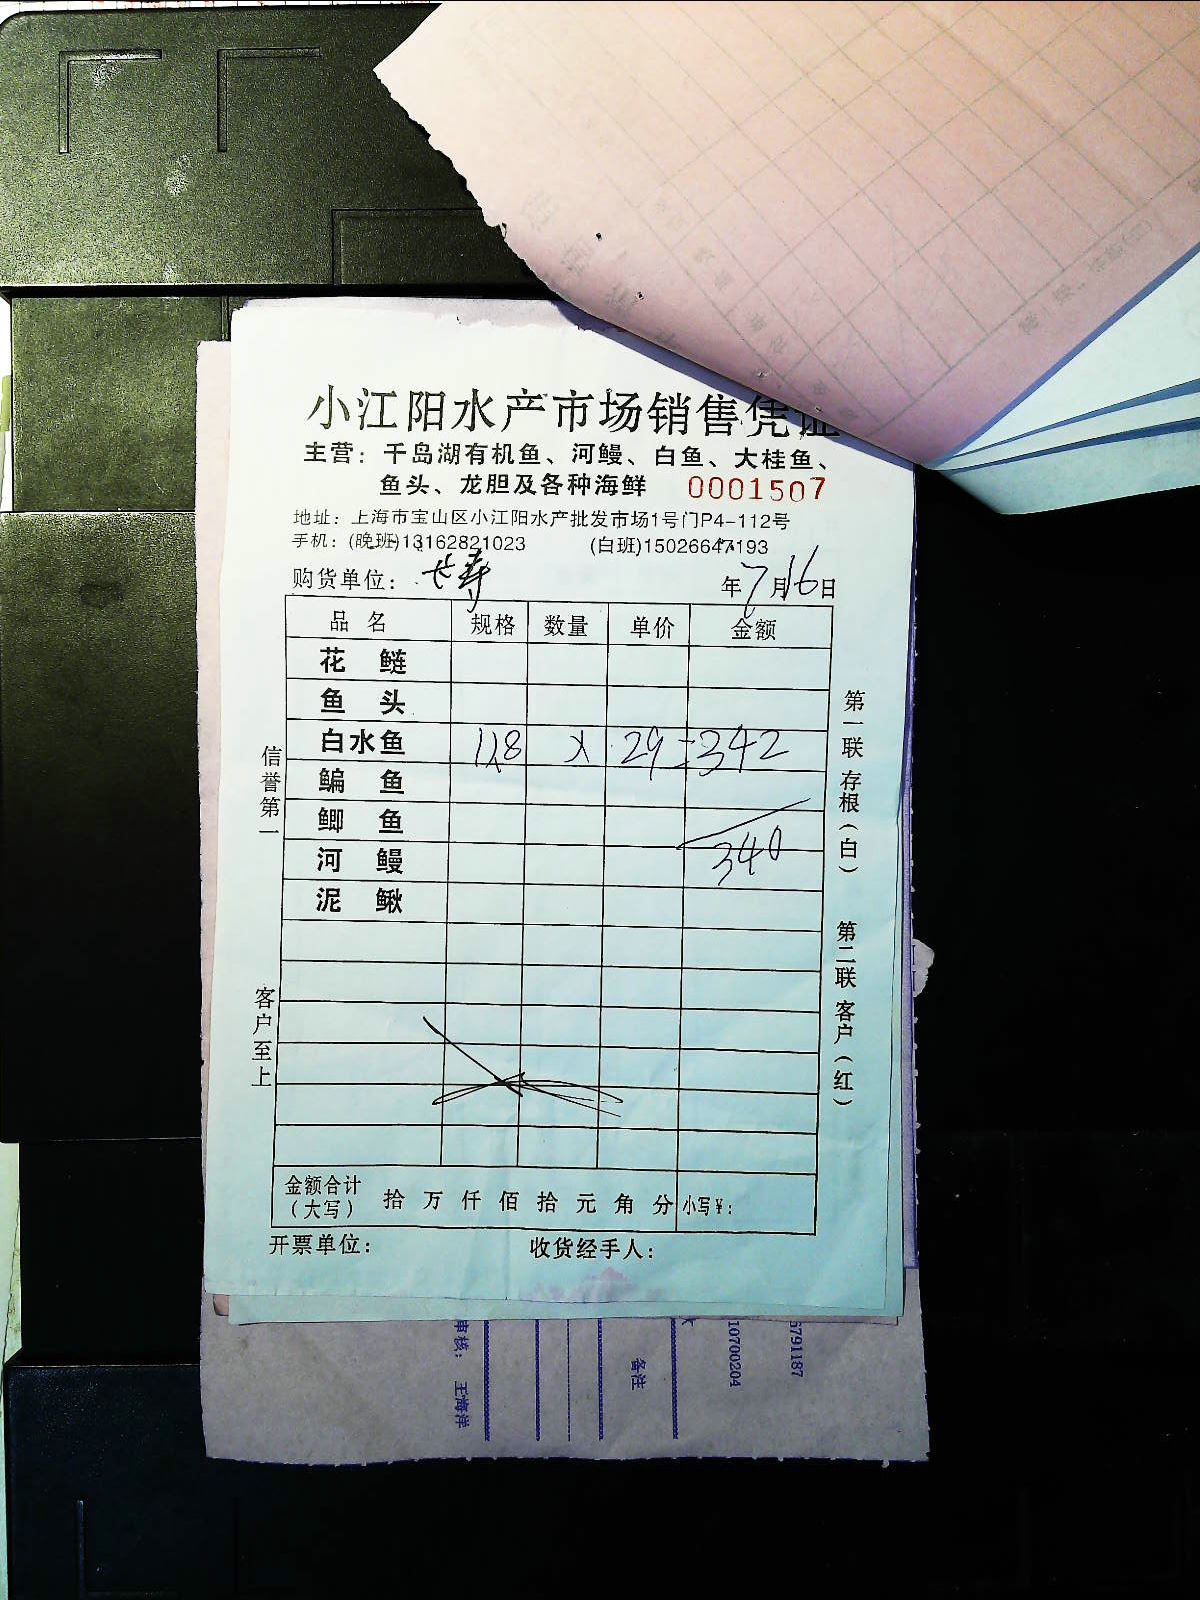 小江阳水产市场销售凭证
主营：千岛湖有机鱼、河鳗、白鱼、大桂鱼、
鱼头、龙胆及各种海鲜 0001507
地址：上海市宝山区小江阳水产批发市场1号门P4-112号
手机：(晚班)13162821023 (白班)15026647193
购货单位：长寿 年7月16日
品名 规格 数量 单价 金额
花鲢
鱼头
白水鱼 11.8 × 29=342
鳊鱼
鲫鱼
340
河鳗
泥鳅
金额合计
（大写） 拾万仟佰拾元角分 小写¥:
开票单位： 收货经手人：
信誉第一
客户至上
第一联 存根（白）
第二联 客户（红）
审核： 王海洋
备注
10700204
6791187